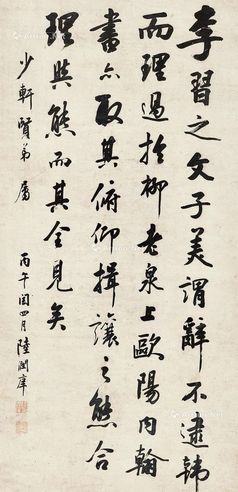 李習之文子美謂辭不逮韓
而理過於柳老泉上歐陽內翰
書亦取其俯仰揖讓之態合
理與態而其全見矣
少軒賢弟屬
丙午閏四月陸潤庠